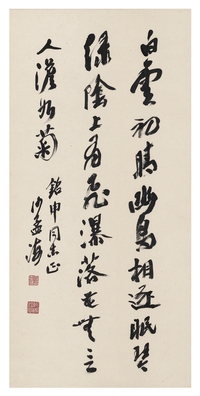 白雲初晴幽鳥相逐眠琴
綠陰上有飛瀑落花無言
人澹如菊 銘申同志正
沙孟海